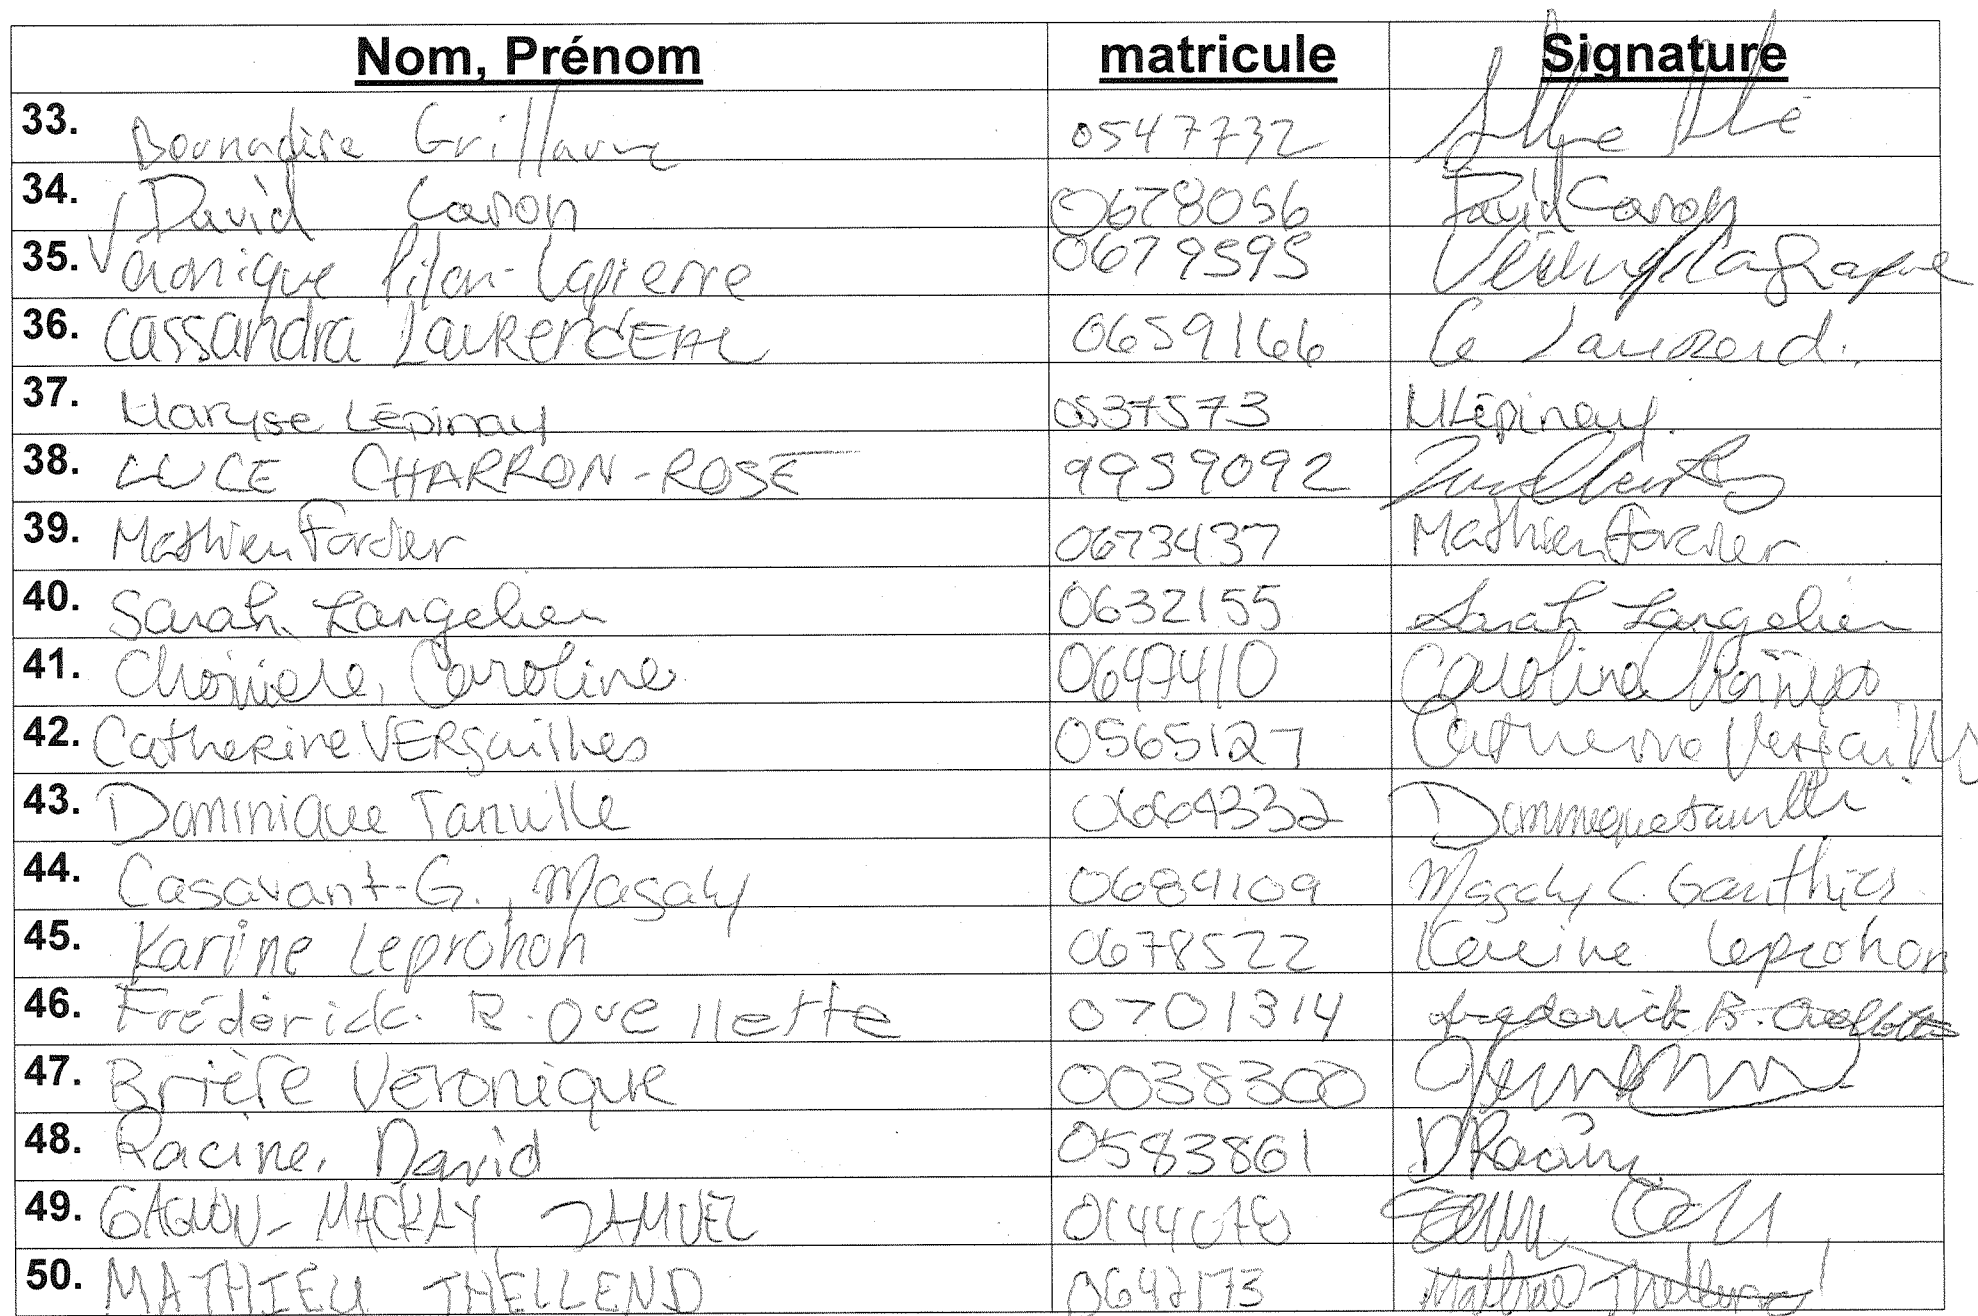 Nom, Prénom matricule Signature
33. Guillaume 0547732
34. David Caron 0678056 David Caron
35. Véronique Pilon-Lapierre 0679595
36. Cassandra LaurendEAU 0659166
37. Maryse Lépinay 0537573 MLépinay
38. LUCE CHARRON-ROSE 9959092
39. Mathieu Forcier 0673437 Mathieu Forcier
40. Sarah Langelier 0632155 Sarah Langelier
41. Choiniere, Caroline 0697410 Caroline Choiniere
42. Catherine VERsailles 0565127 Catherine Versailles
43. Dominique Tanville 0664332 Dominique Tanville
44. Casavant-G., Magaly 0689109 Magaly C. Gauthier
45. Karine Leprohon 0678522 Karine Leprohon
46. Fréderick R. Ouellette 0701314 Frederick R. Ouellette
47. Brière Véronique 0038300
48. Racine, David 0583861 DRacine
49. GAGNON-MACKAY SAMUEL
50. MATHIEU THELLEND 0642173 Mathieu Thellend